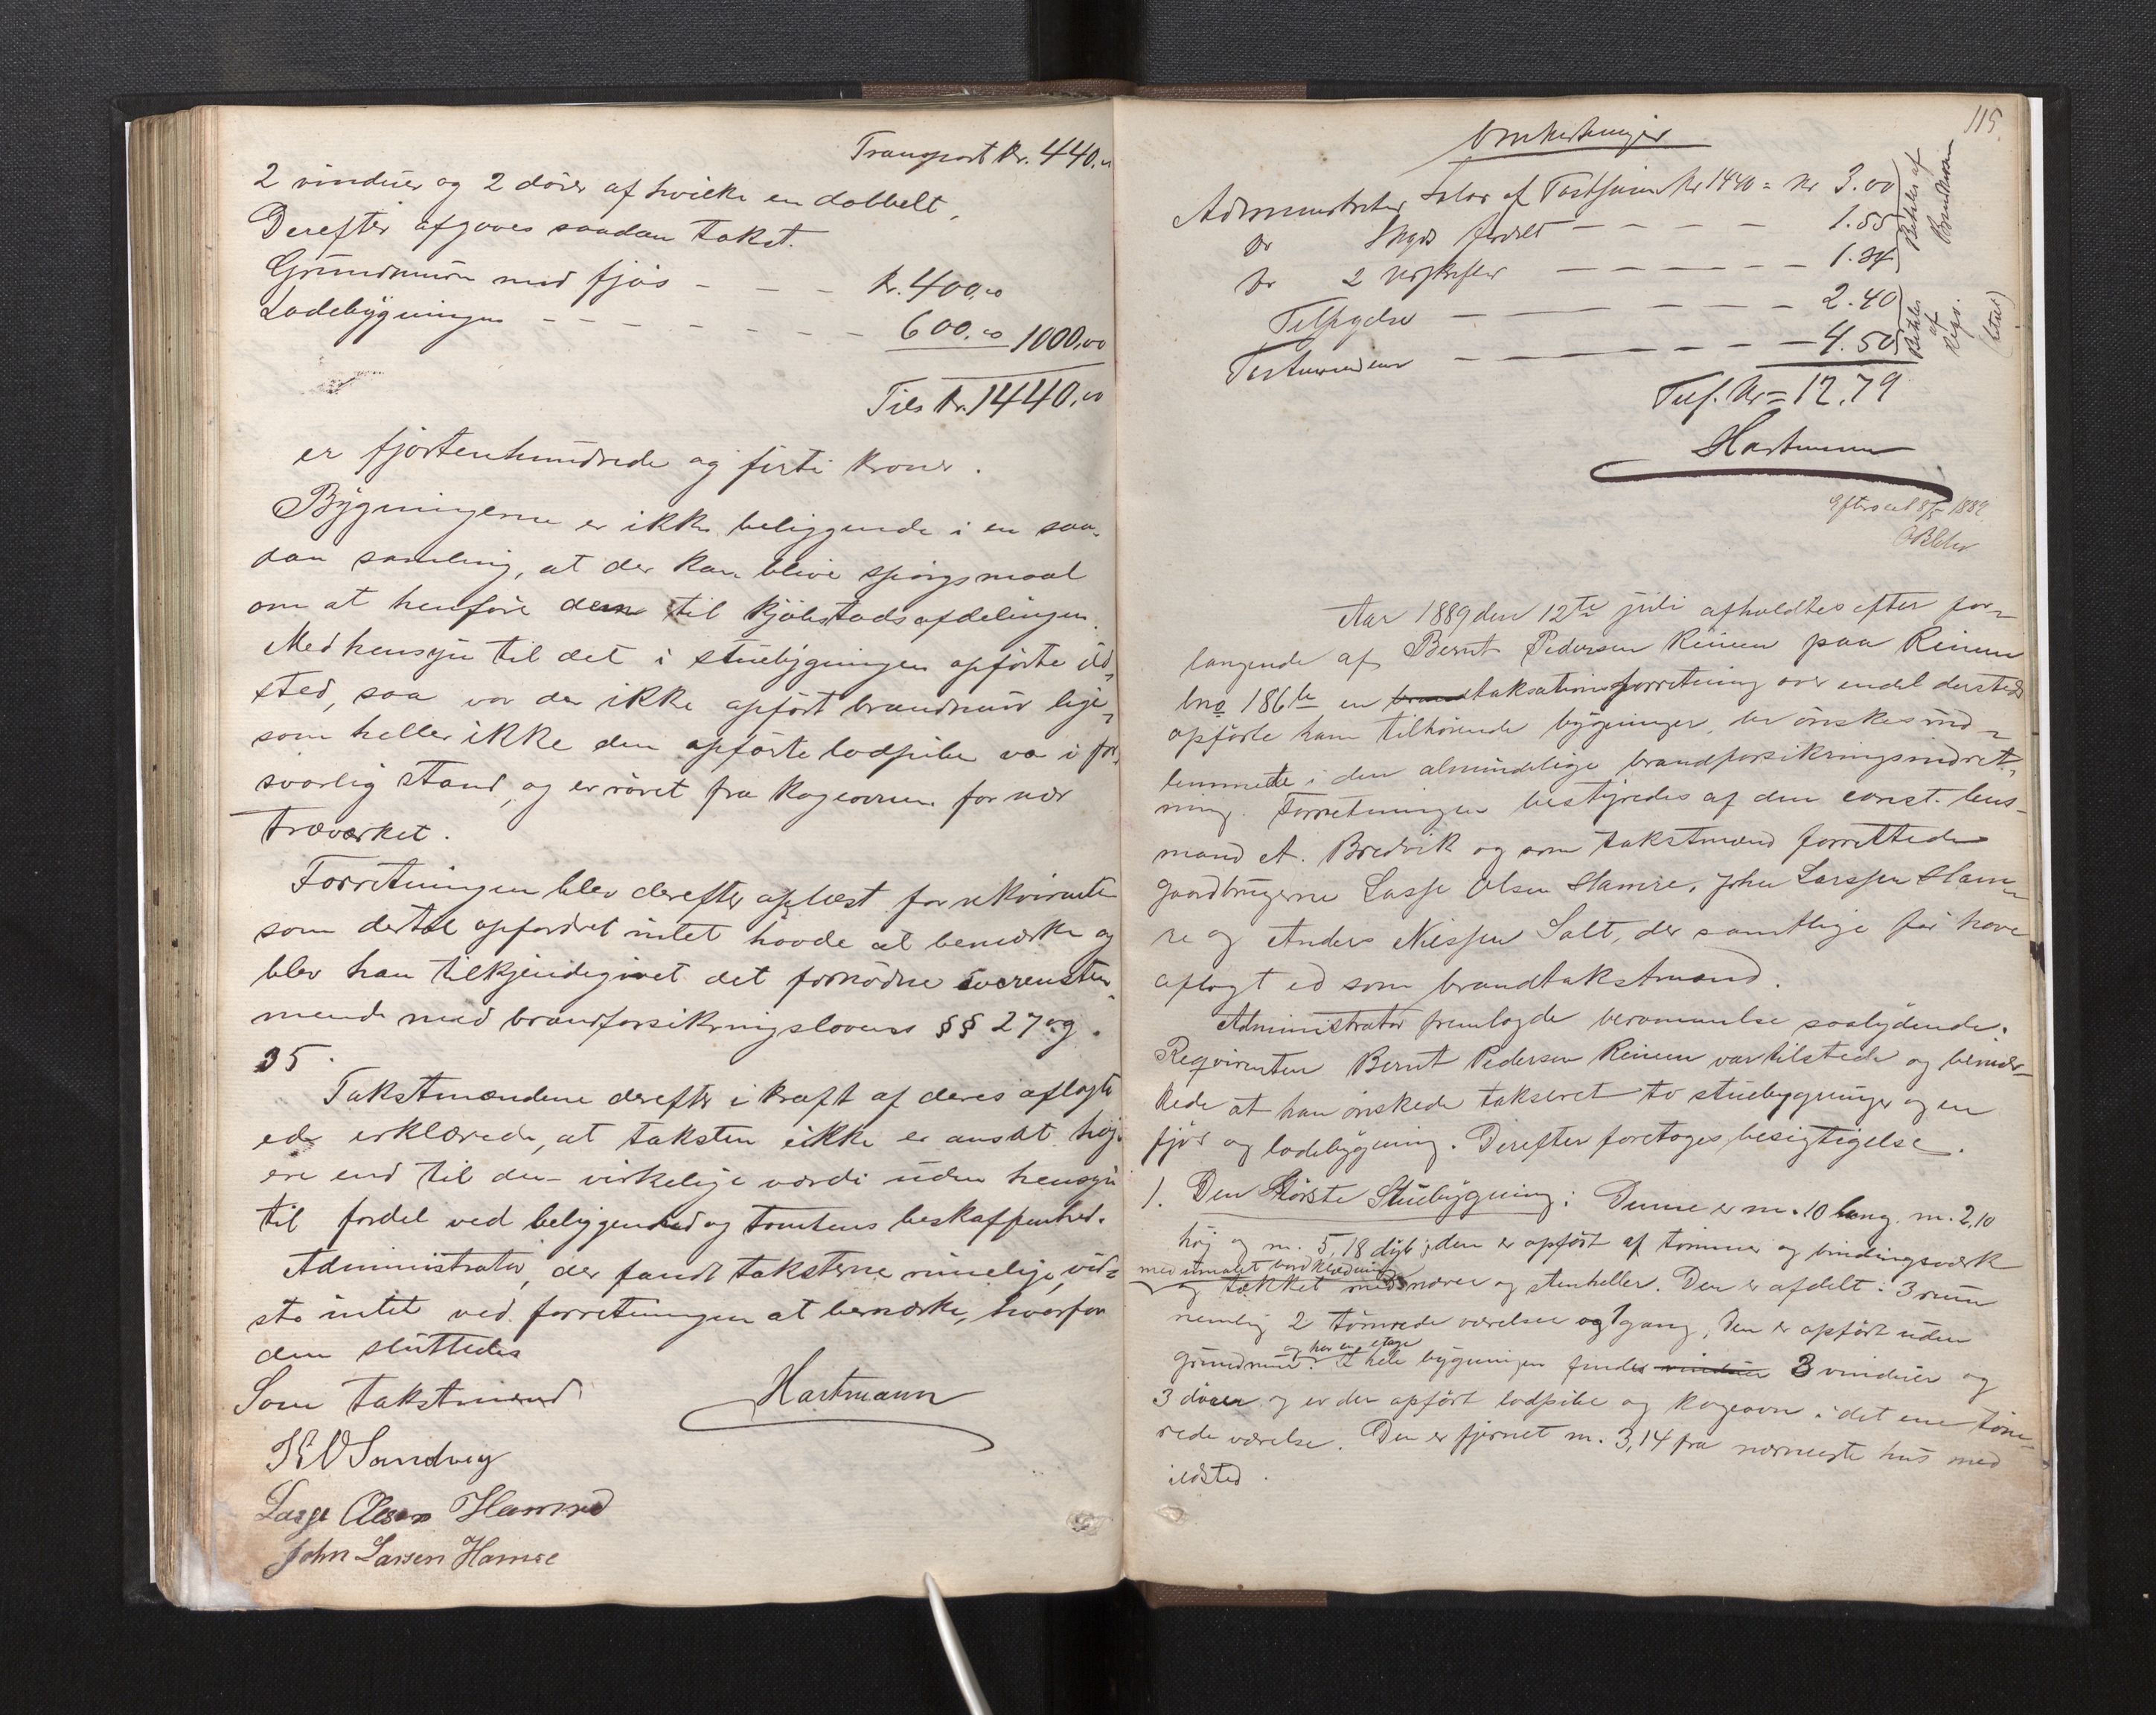 Transport kr. 440,00
2 vinduer og 2 döre af hvilke en dobbelt.
Derefter afgaves saadan takst.
Grundmuren med fjös - - - kr. 400,00
Ladebygningen - - - - - - - - 600,00 1000,00
Tils kr. 1440,00
er fjortenhundrede og firti kroner.
Bygningerne er ikke beliggende i en saa-
dan samling, at der kan blive spörgsmaal
om at henföre dem til kjöbstadsafdelingen.
Med hensyn til det i stuebygningen opförte ild-
sted, saa var der ikke opfört brandmur lige-
som heller ikke den opförte lodpibe var i for-
svarlig stand, og er röret fra kogeovnen for nær
træværket.
Forretningen blev derefter oplæst for rekvirenten
som dertil opfordret intet havde at bemærke og
blev han tilkjendegivet det fornödne overenstem-
mende med brandforsikringslovens §§ 27 og
35.
Takstmændene derefter i kraft af deres aflagte
ed erklærede, at taksten ikke er ansat höi-
ere end til den virkelige værdi uden hensyn
til fordel ved beliggenhed og tomtens beskaffenhed.
Administrator, der fandt taksterne rimelige, vid-
ste intet ved forretningen at bemærke, hvorfor
den sluttedes
Som takstmænd Hartmann
Sandvig
Lasse Olsen Hamre
John Larsen Hamre
115.
Omkostninger
Administrators Salær af Taxtsum kr 1440 = kr 3.00
Do Skyds fordelt - - - - - 1.55
Do 2 - - - - - - 1.34
- - - - - - - 2.40
Taxtmændene - - - - - - - 4.50
Betales af Brandkassen
Betales af Reqv. (betalt)
Tils. Kr = 12.79
Hartmann
Efterseet 8/5 1889
Aar 1889 den 12te juli afholdtes efter for-
langende af Bernt Pedersen Reinen paa Reinen
bno 186 en brandtaksationsforretning over endel dersteds
opförte ham tilhörende bygninger, der önskes ind-
lemmede i den almindelige brandforsikringsindret-
ning. Forretningen bestyredes af den const. lens-
mand A. Bredvik og som takstmænd forrettede
gaardbrugerne Lasse Olsen Hamre, John Larssen Ham-
re og Anders Nilssen Salt, der samtlige för have
aflagt ed som brandtakstmænd.
Administrator fremlagde berammelse saalydende.
Reqvirenten Bernt Pedersen Reinen var tilstede og bemær-
kede at han önskede takseret to stuebygninger og en
fjös og ladebygning. Derefter foretoges besigtigelse.
1. Den störste Stuebygning: Denne er m. 10 lang. m. 2,10
höj og m. 5,18 dyb; den er opfört af tömmer og bindingsværk
med umalet bordklædning
og tækket med næver og stenheller. Den er afdelt i 3 rum
nemlig 2 tömrede værelser og 1 gang, den er opfört uden
og har en etage
grundmur. I hele bygningen findes vinduer 3 vinduer og
3 döre og er der opfört lodpibe og kogeovn i det ene töm-
rede værelse. Den er fjernet m. 3,14 fra nærmeste hus med
ildsted.